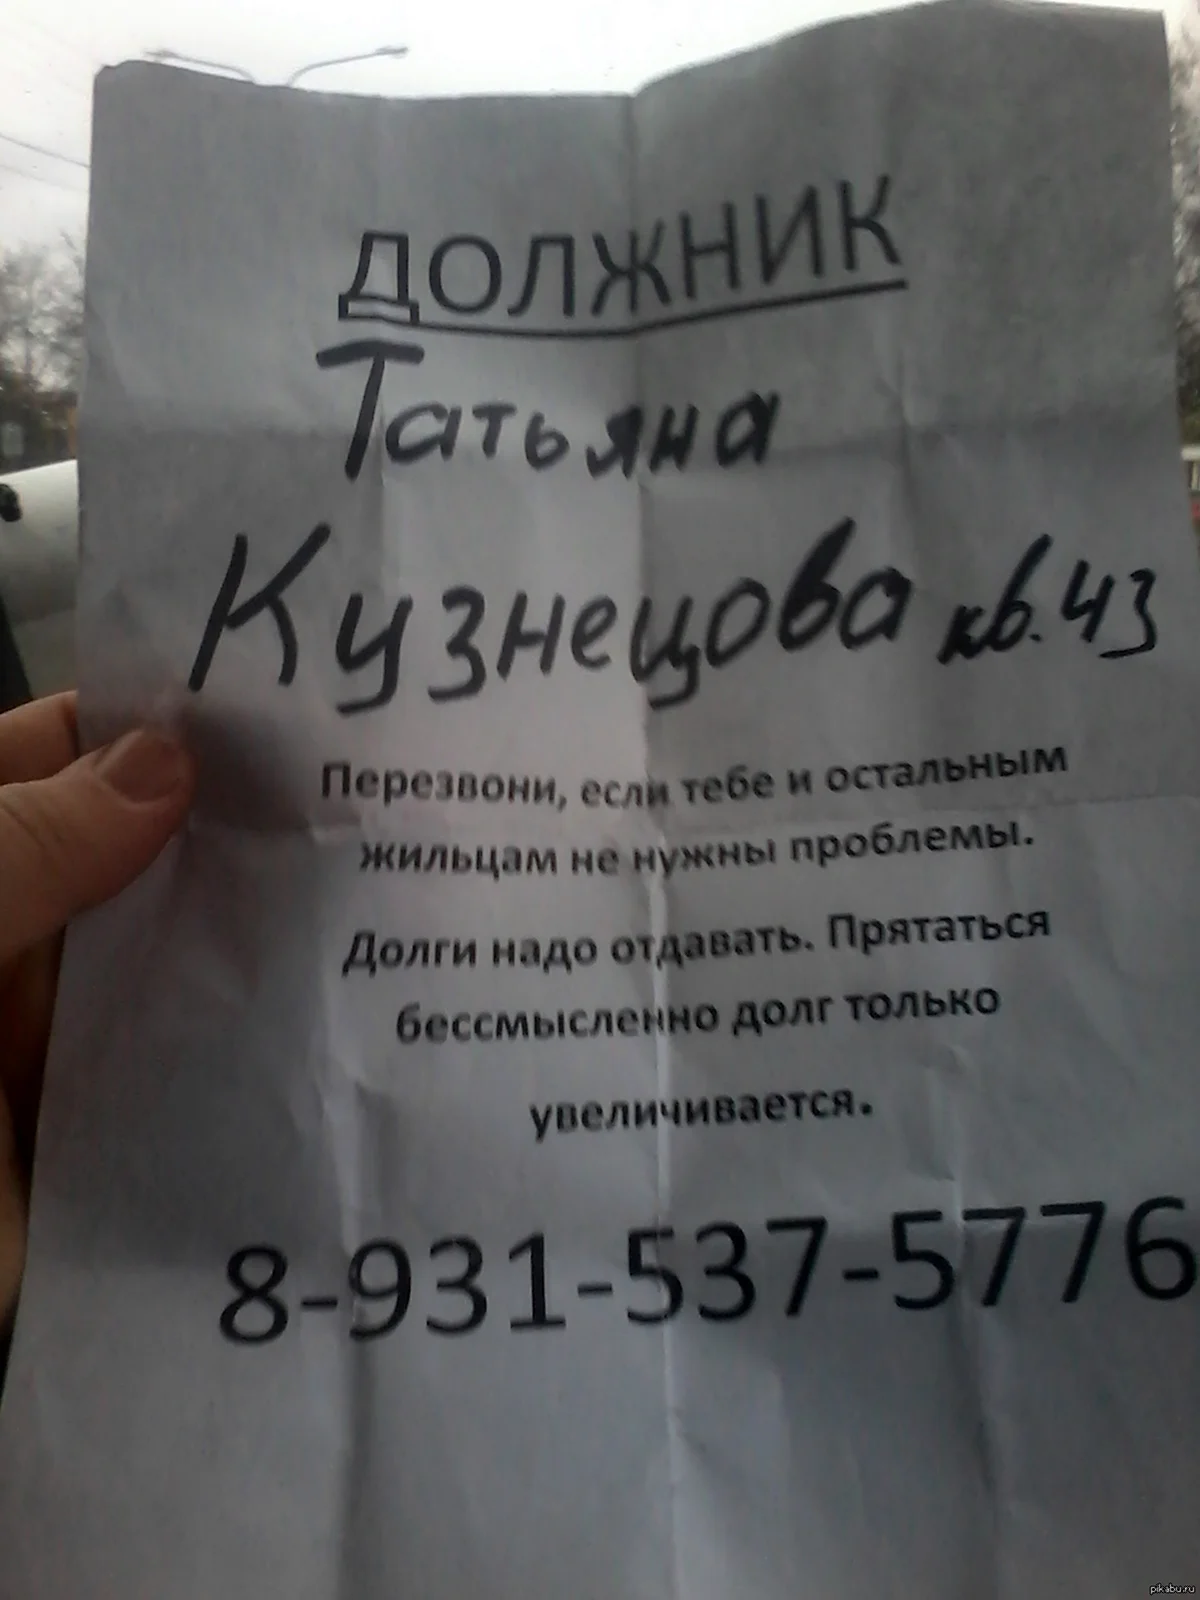 ДОЛЖНИК
Татьяна
Кузнецова кв. 43
Перезвони, если тебе и остальным
жильцам не нужны проблемы.
Долги надо отдавать. Прятаться
бессмысленно долг только
увеличивается.
8-931-537-5776
pikabu.ru